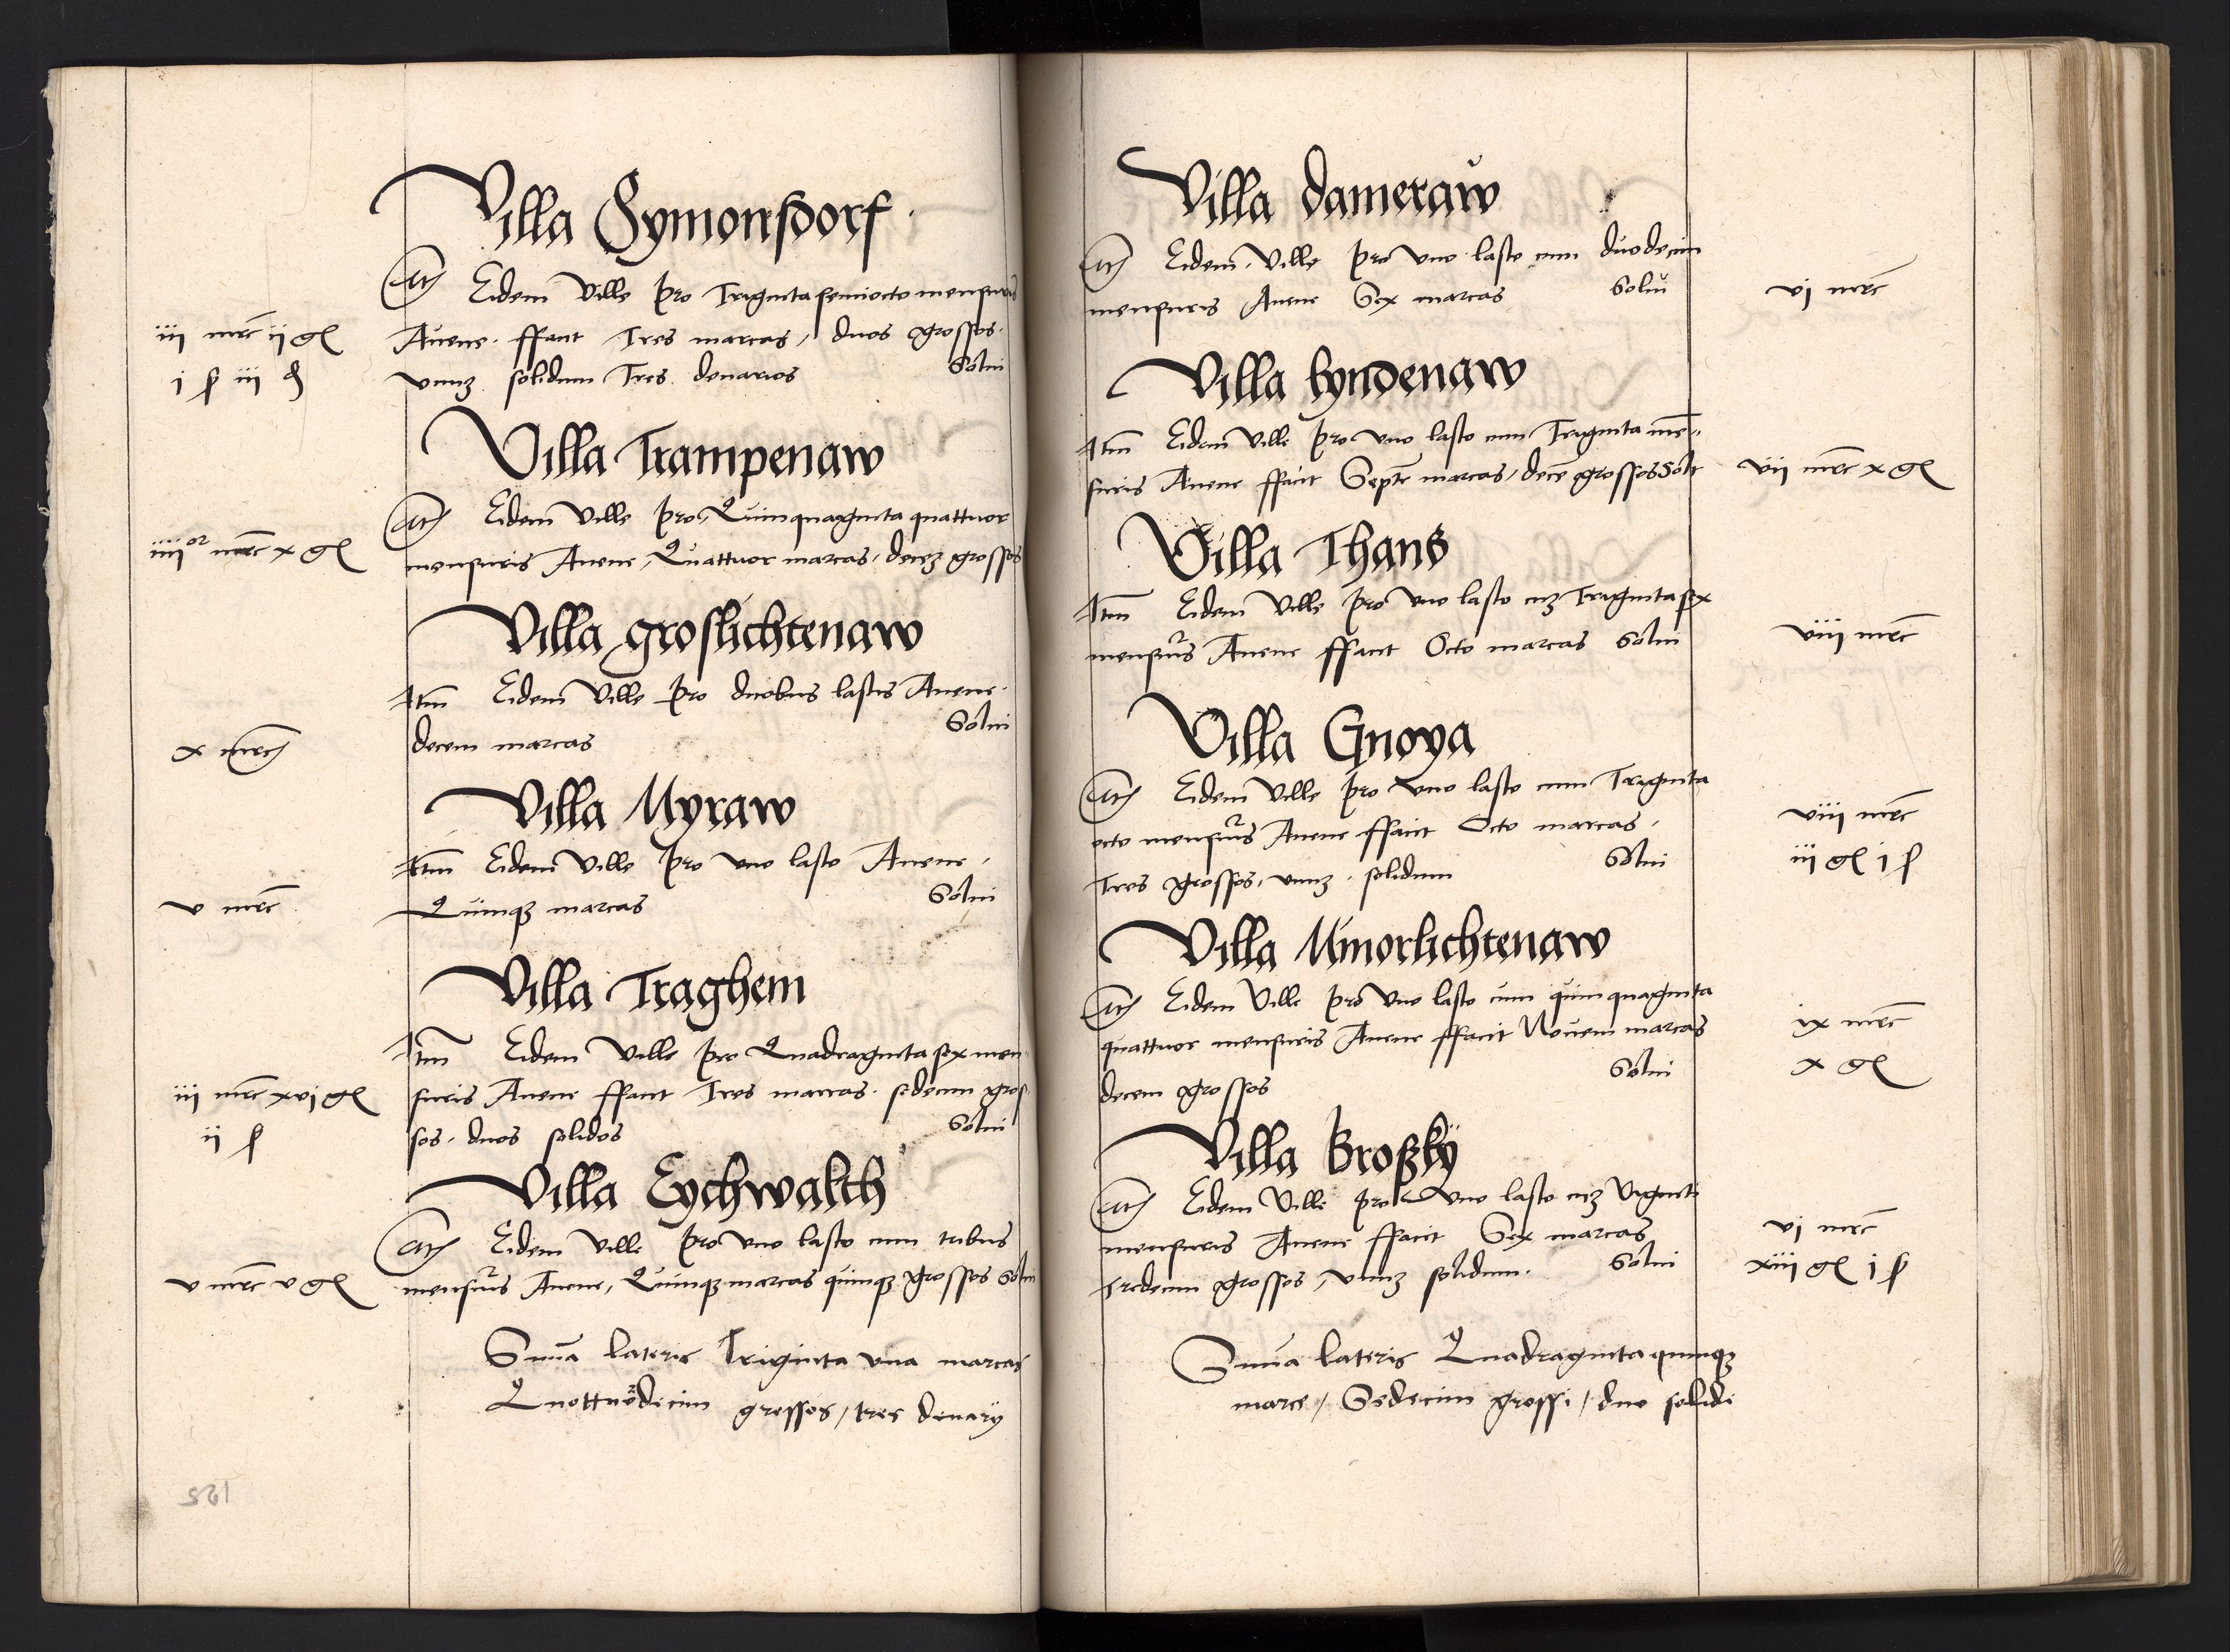 Villa Symonsdorf
Itm Eidem Ville pro Triginta semiocto mensuris
iii mrc ii gl
Auene ffacit Tres marcas, duos grossos
i s iii d
vnuz solidum Tres denarios Solui
Villa Trampenaw
Itm Eidem Ville pro Quinquaginta quattuor
iiii or mrc x gl
mensuris Auene, Quattuor marcas, decez grossos
Villa groslichtenaw
Itm Eidem Ville pro duobus lastis Auene
Solui
x mrc
decem marcas
Villa Myraw
Itm Eidem Ville pro vno lasto Auene,
v mrc
Quinqz marcas Solui
Villa Traghem
Itm Eidem Ville pro Quadraginta sex men
iii mrc xvi gl
suris Auene ffacit Tres marcas sedecim gros
ii s
sos, duos solidos Solui
Villa Eychwalth
Itm Eidem Ville pro vno lasto cum tribus
v mrc v gl
mensuris Auene, Quinqz marcas quinqz grossos Solui
Suma lateris Triginta vna marcas
Quottuordicim grossos, tres denarij
125
Villa dameraw
Itm Eidem Ville pro vno lasto cum duodecim
mensuris Auene Sex marcas Solui
vi mrc
Villa lyndenaw
Itm Eidem Ville pro vno lasto cum Triginta men
suris Auene ffacit Septe marcas, dece grossos Solt
vii mrc x gl
Villa Thans
Itm Eidem Ville pro vno lasto cuz Triginta sex
mensuris Auene ffacit Octo marcas Solui
viii mrc
Villa Gnoya
Itm Eidem Ville pro vno lasto cum Triginta
octo mensuris Auene ffacit Octo marcas,
viii mrc
Tres grossos, vnuz solidum Solui
iii gl i s
Villa Minorlichtenaw
Itm Eidem Ville pro vno lasto cum quinquaginta
quattuor mensuris Auene ffacit Nouem marcas
ix mrc
decem grossos Solui
x gl
Villa Broßky
Itm Eidem Ville pro vno lasto cuz Viginti
mensuris Auene ffacit Sex marcas
vi mrc
Tredecim grossos, vnuz solidum Solui
xiii gl i s
Suma lateris Quadraginta quinqz
marce, Sedecim grossi, duo solidi